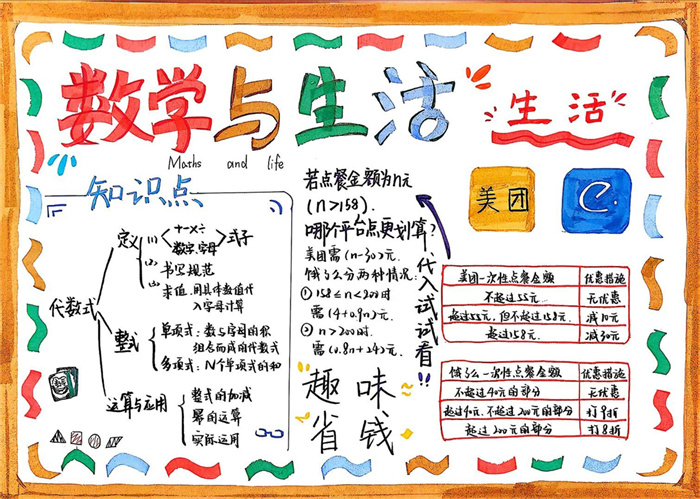 数学与生活
Maths and life
生活
知识点
代数式
定义
(1)
+-×÷
数字.字母
式子
(2) 书写规范
(3) 求值.用具体数值代
入字母计算
整式
单项式：数与字母的积
组合而成的代数式
多项式：N个单项式的和
运算与应用
整式的加减
幂的运算
实际运用
若点餐金额为n元
(n>158).
哪个平台点更划算?
美团需(n-30)元.
饿了么分两种情况:
① 158≤n<200时
需(4+0.9n)元.
② n>200时.
需(0.8n+24)元.
代入试试看!!
趣味
省钱
美团
e
美团一次性点餐金额 优惠措施
不超过55元 无优惠
超过55元，但不超过158元. 减10元
超过158元. 减30元
饿了么一次性点餐金额 优惠措施
不超过40元的部分 无优惠
超过40元.不超过200元的部分 打9折
超过200元的部分 打8折